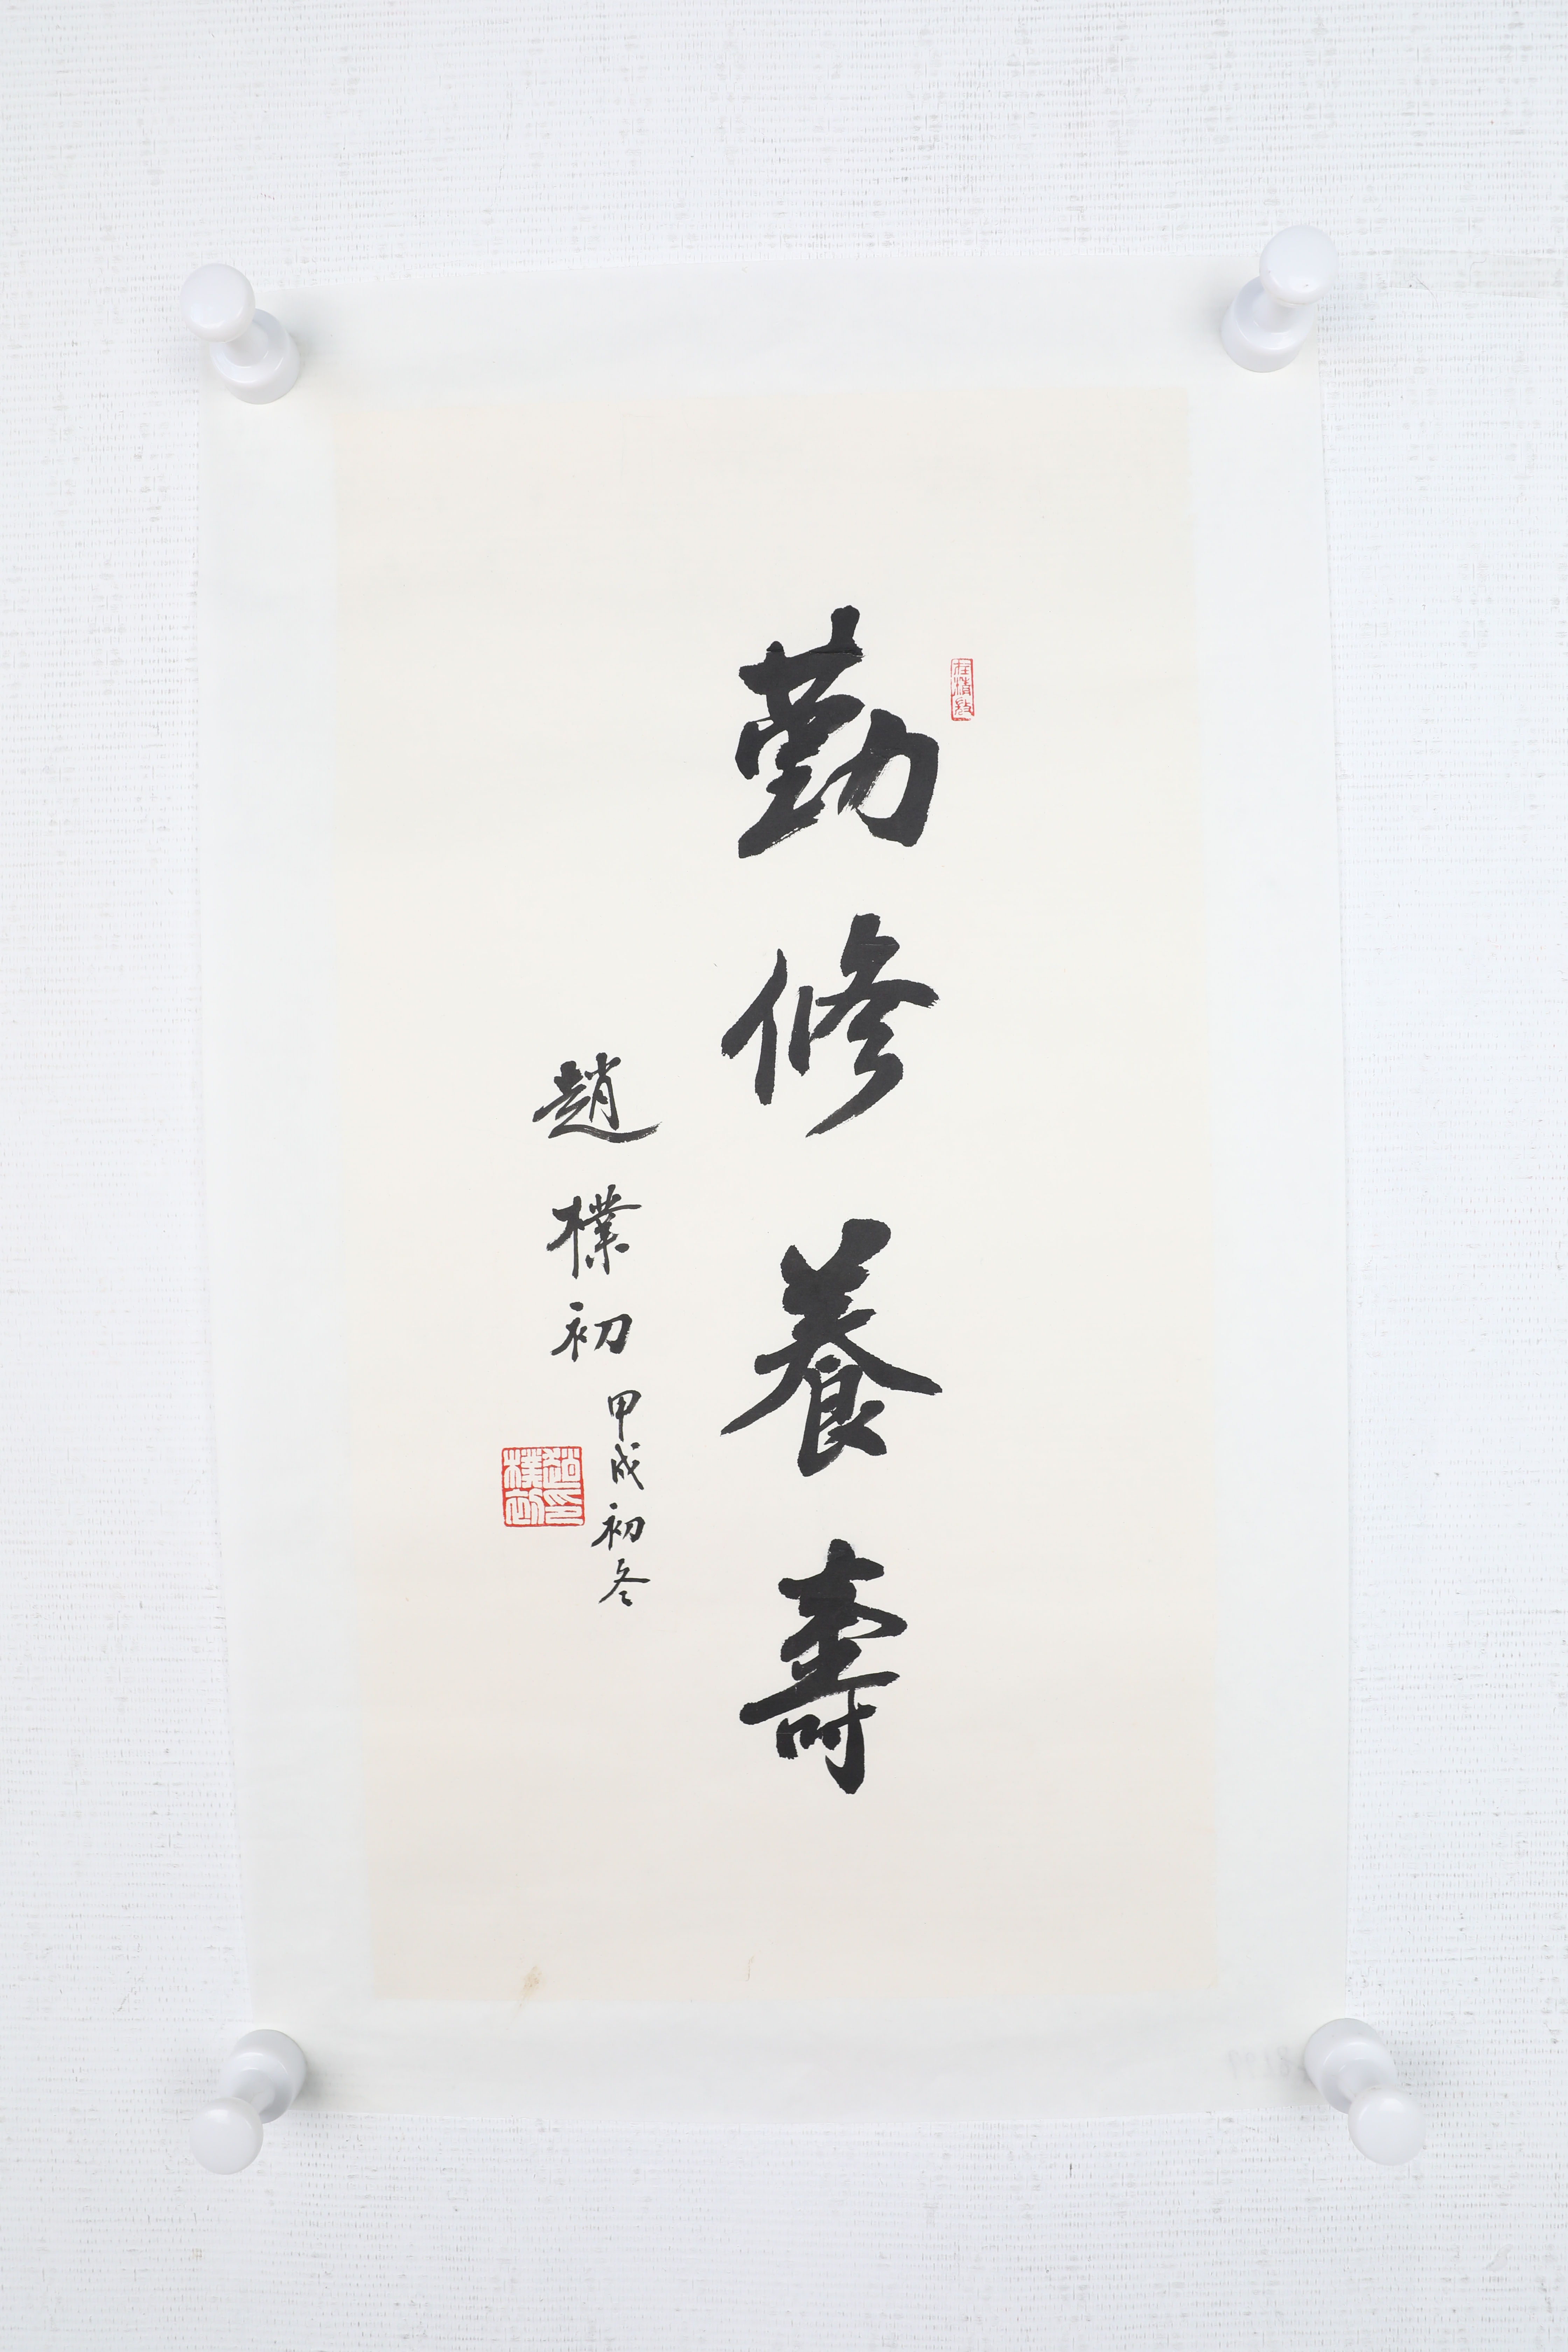 勤修養壽
趙樸初
甲戌初冬
趙印樸初